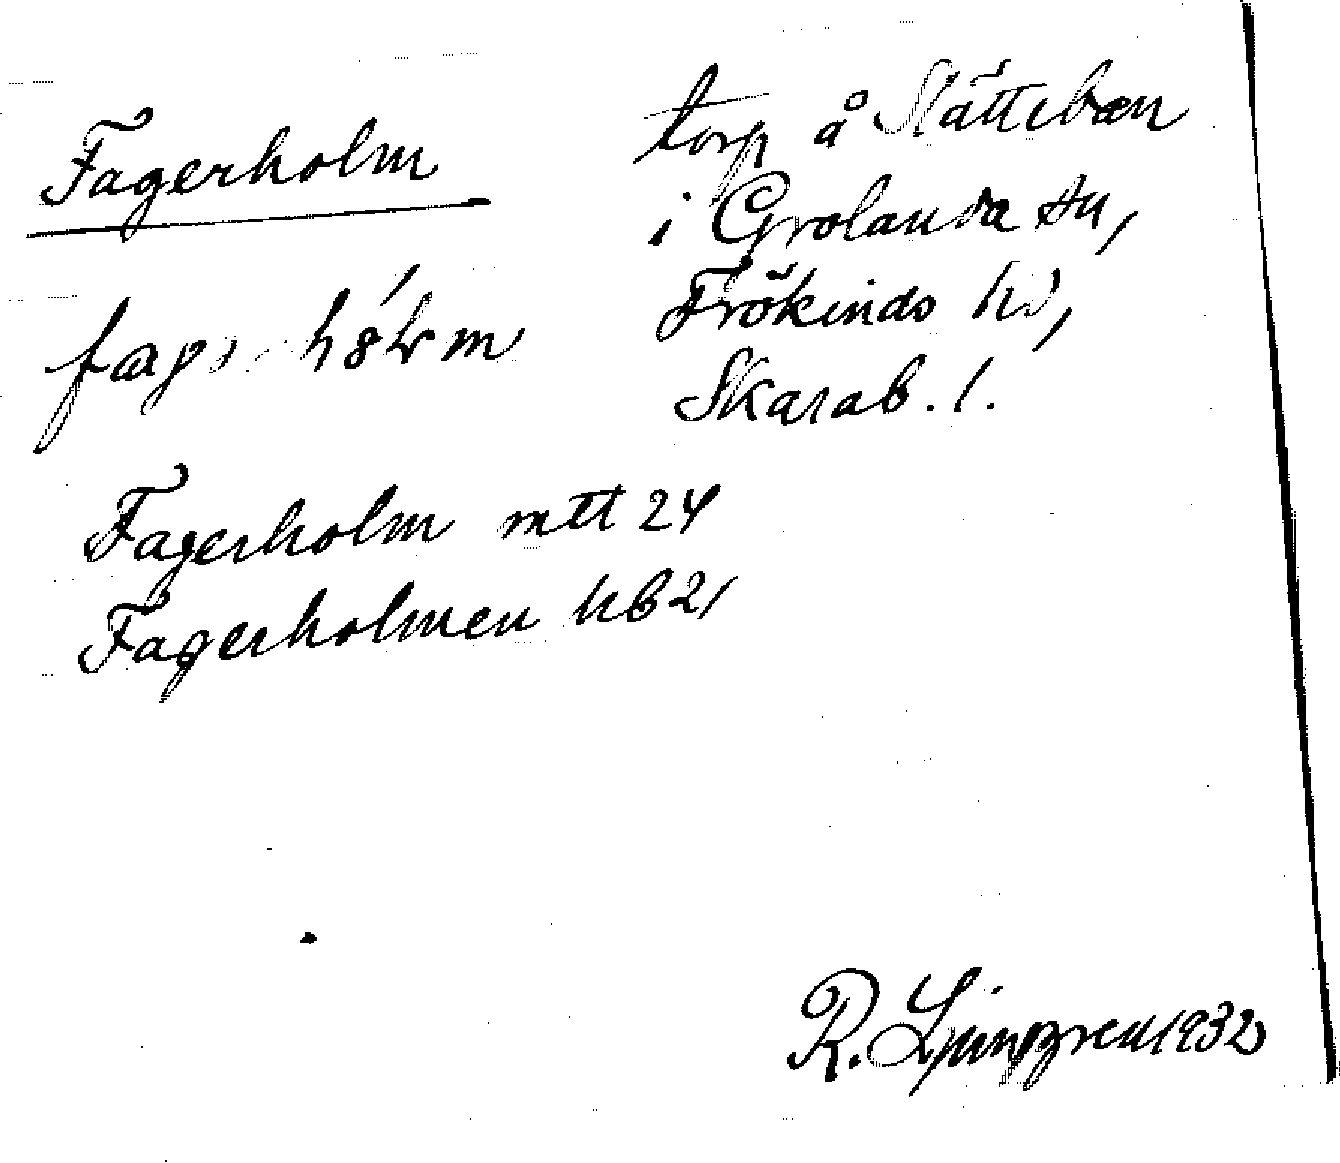 Fagerholm
torp å Slätteberg
i Grolanda sn,
Frökinds hd,
Skarab. l.
Fagerholm mtt 24
Fagerholmen hb 21
R. Ljunggren 1932